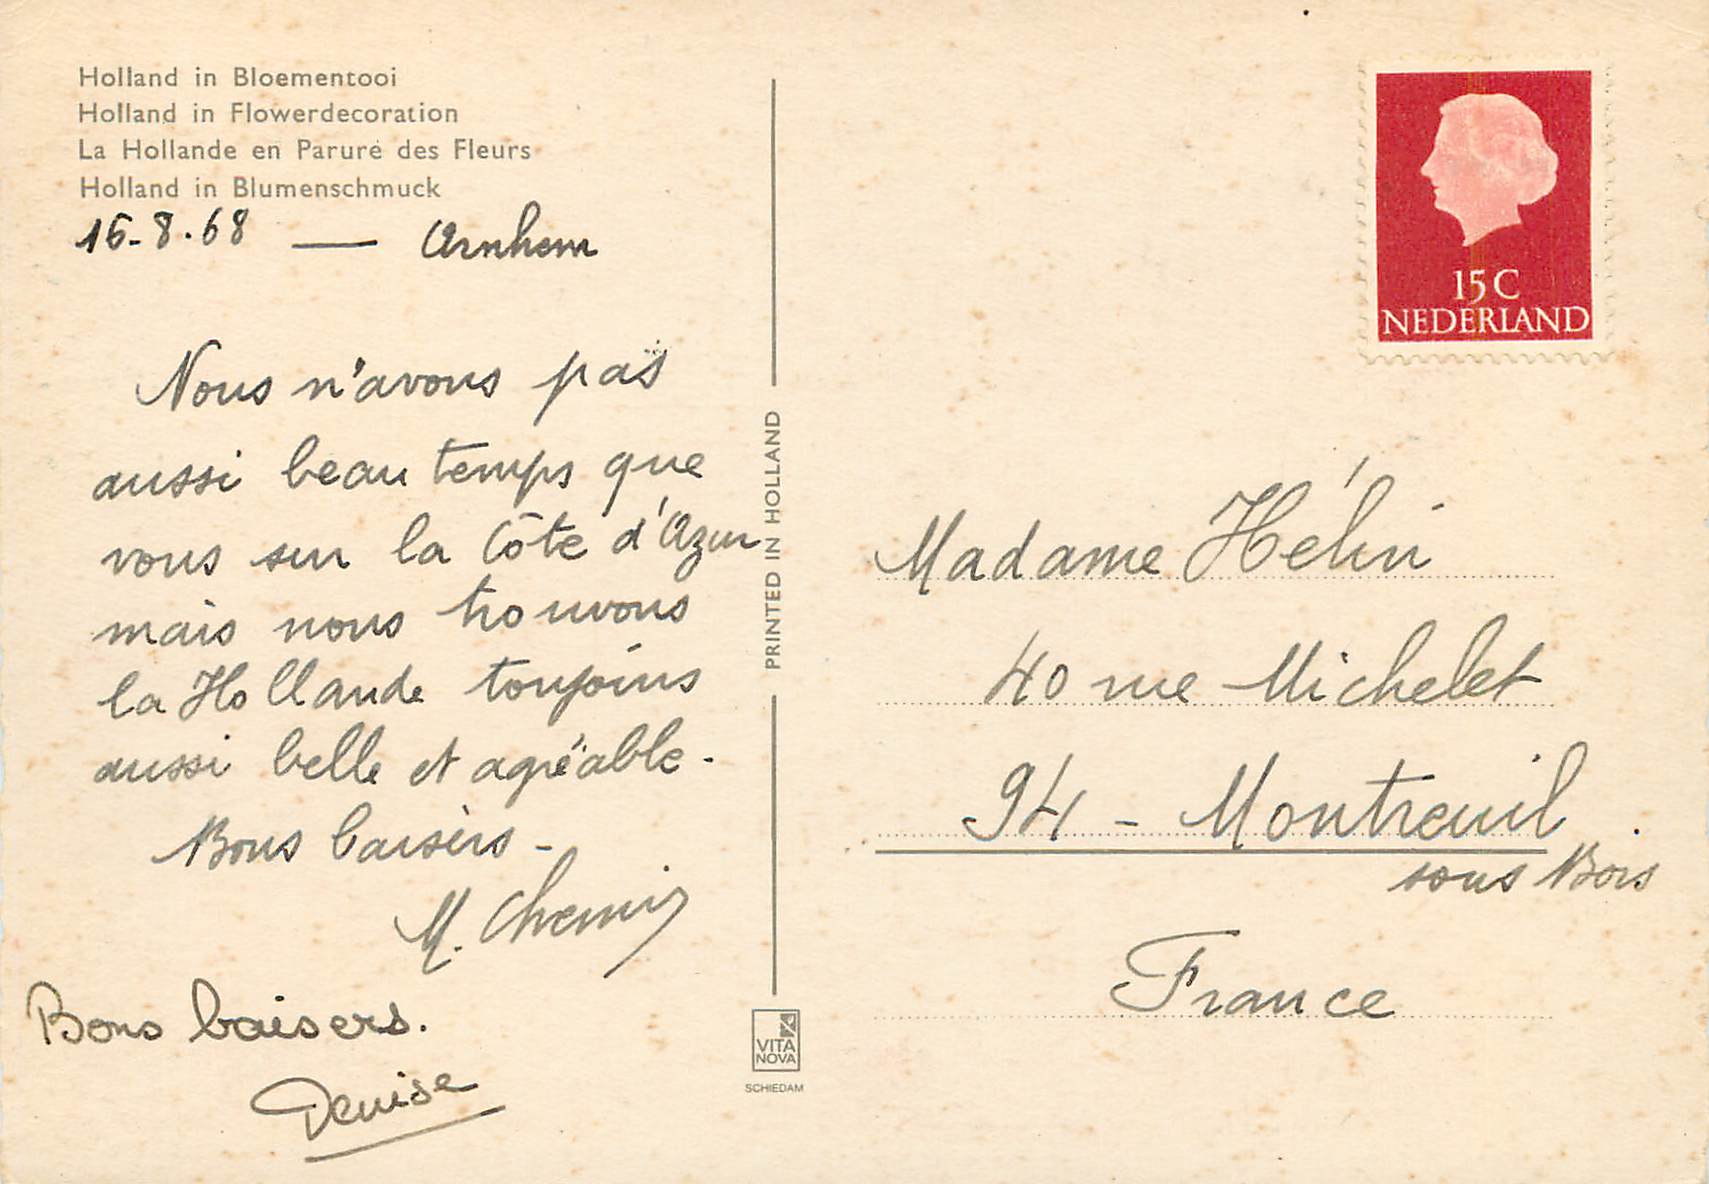 Holland in Bloementooi
Holland in Flowerdecoration
La Hollande en Parure des Fleurs
Holland in Blumenschmuck
16-8.68 — Arnhem
Nous n'avons pas
aussi beau temps que
vous sur la Côte d'Azur
mais nous trouvons
la Hollande toujours
aussi belle et agréable.
Bons baisers -
M. Chemin
Bons baisers.
Denise
PRINTED IN HOLLAND
VITA
NOVA
SCHIEDAM
15 C
NEDERLAND
Madame Hélin
40 rue Michelet
94 - Montreuil
sous Bois
France